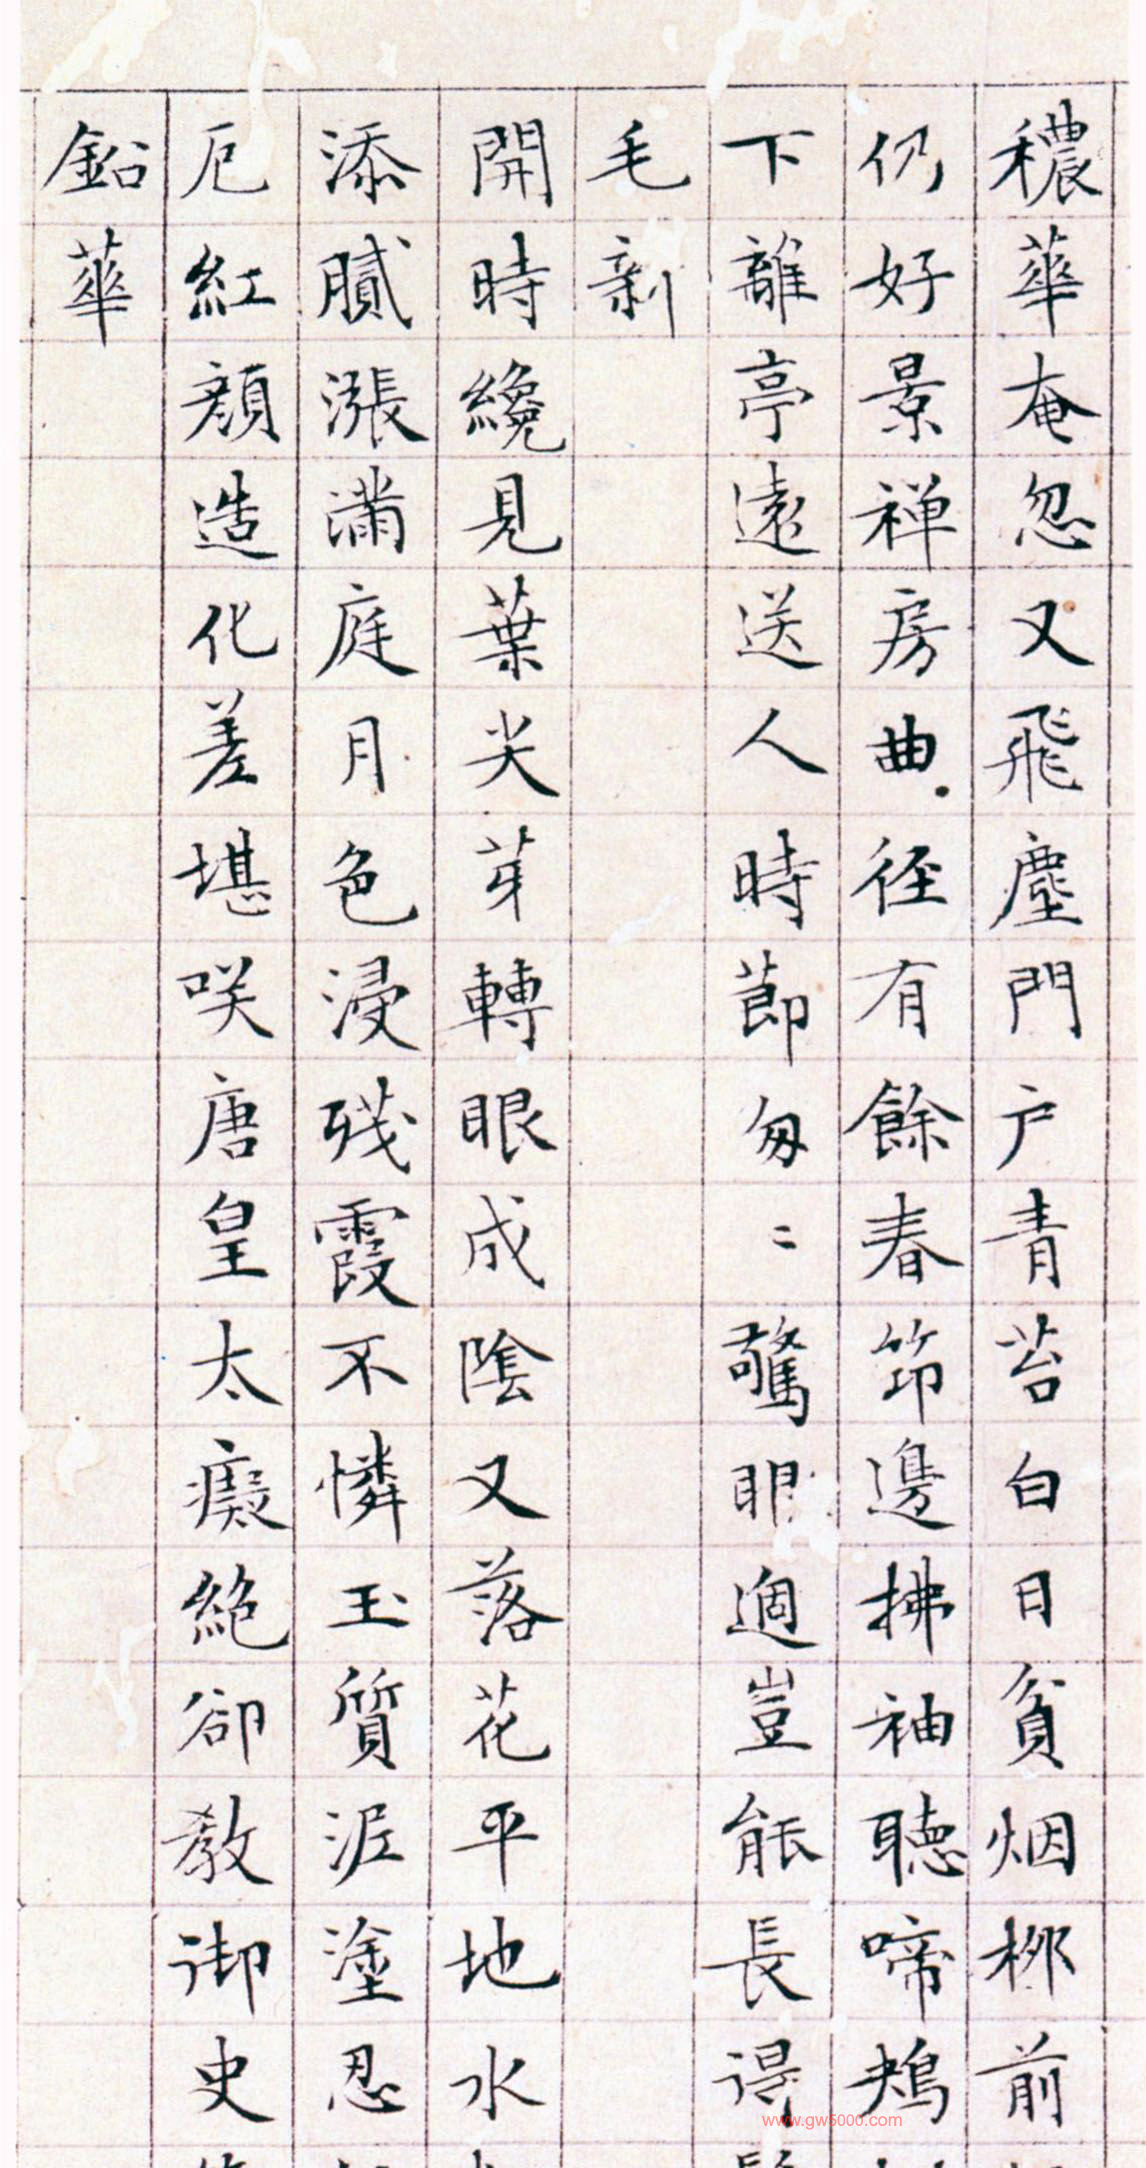 穠華奄忽又飛塵門戶青苔白日貧烟柳前
仍好景禅房曲徑有餘春笻邊拂袖聽啼鴂
下離亭遠送人時節匆〻驚眼過豈能長得
毛新
開時纔見葉尖芽轉眼成陰又落花平地水
添膩漲滿庭月色浸殘霞不憐玉質泥塗忍
厄紅顏造化差堪咲唐皇太癡絕卻教御史
鉛華
www.gw5000.com